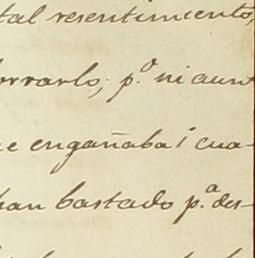 tal resentimiento,
orrarlo; p.º ni aun
e engañaba i cua-
han bastado p.ª des-